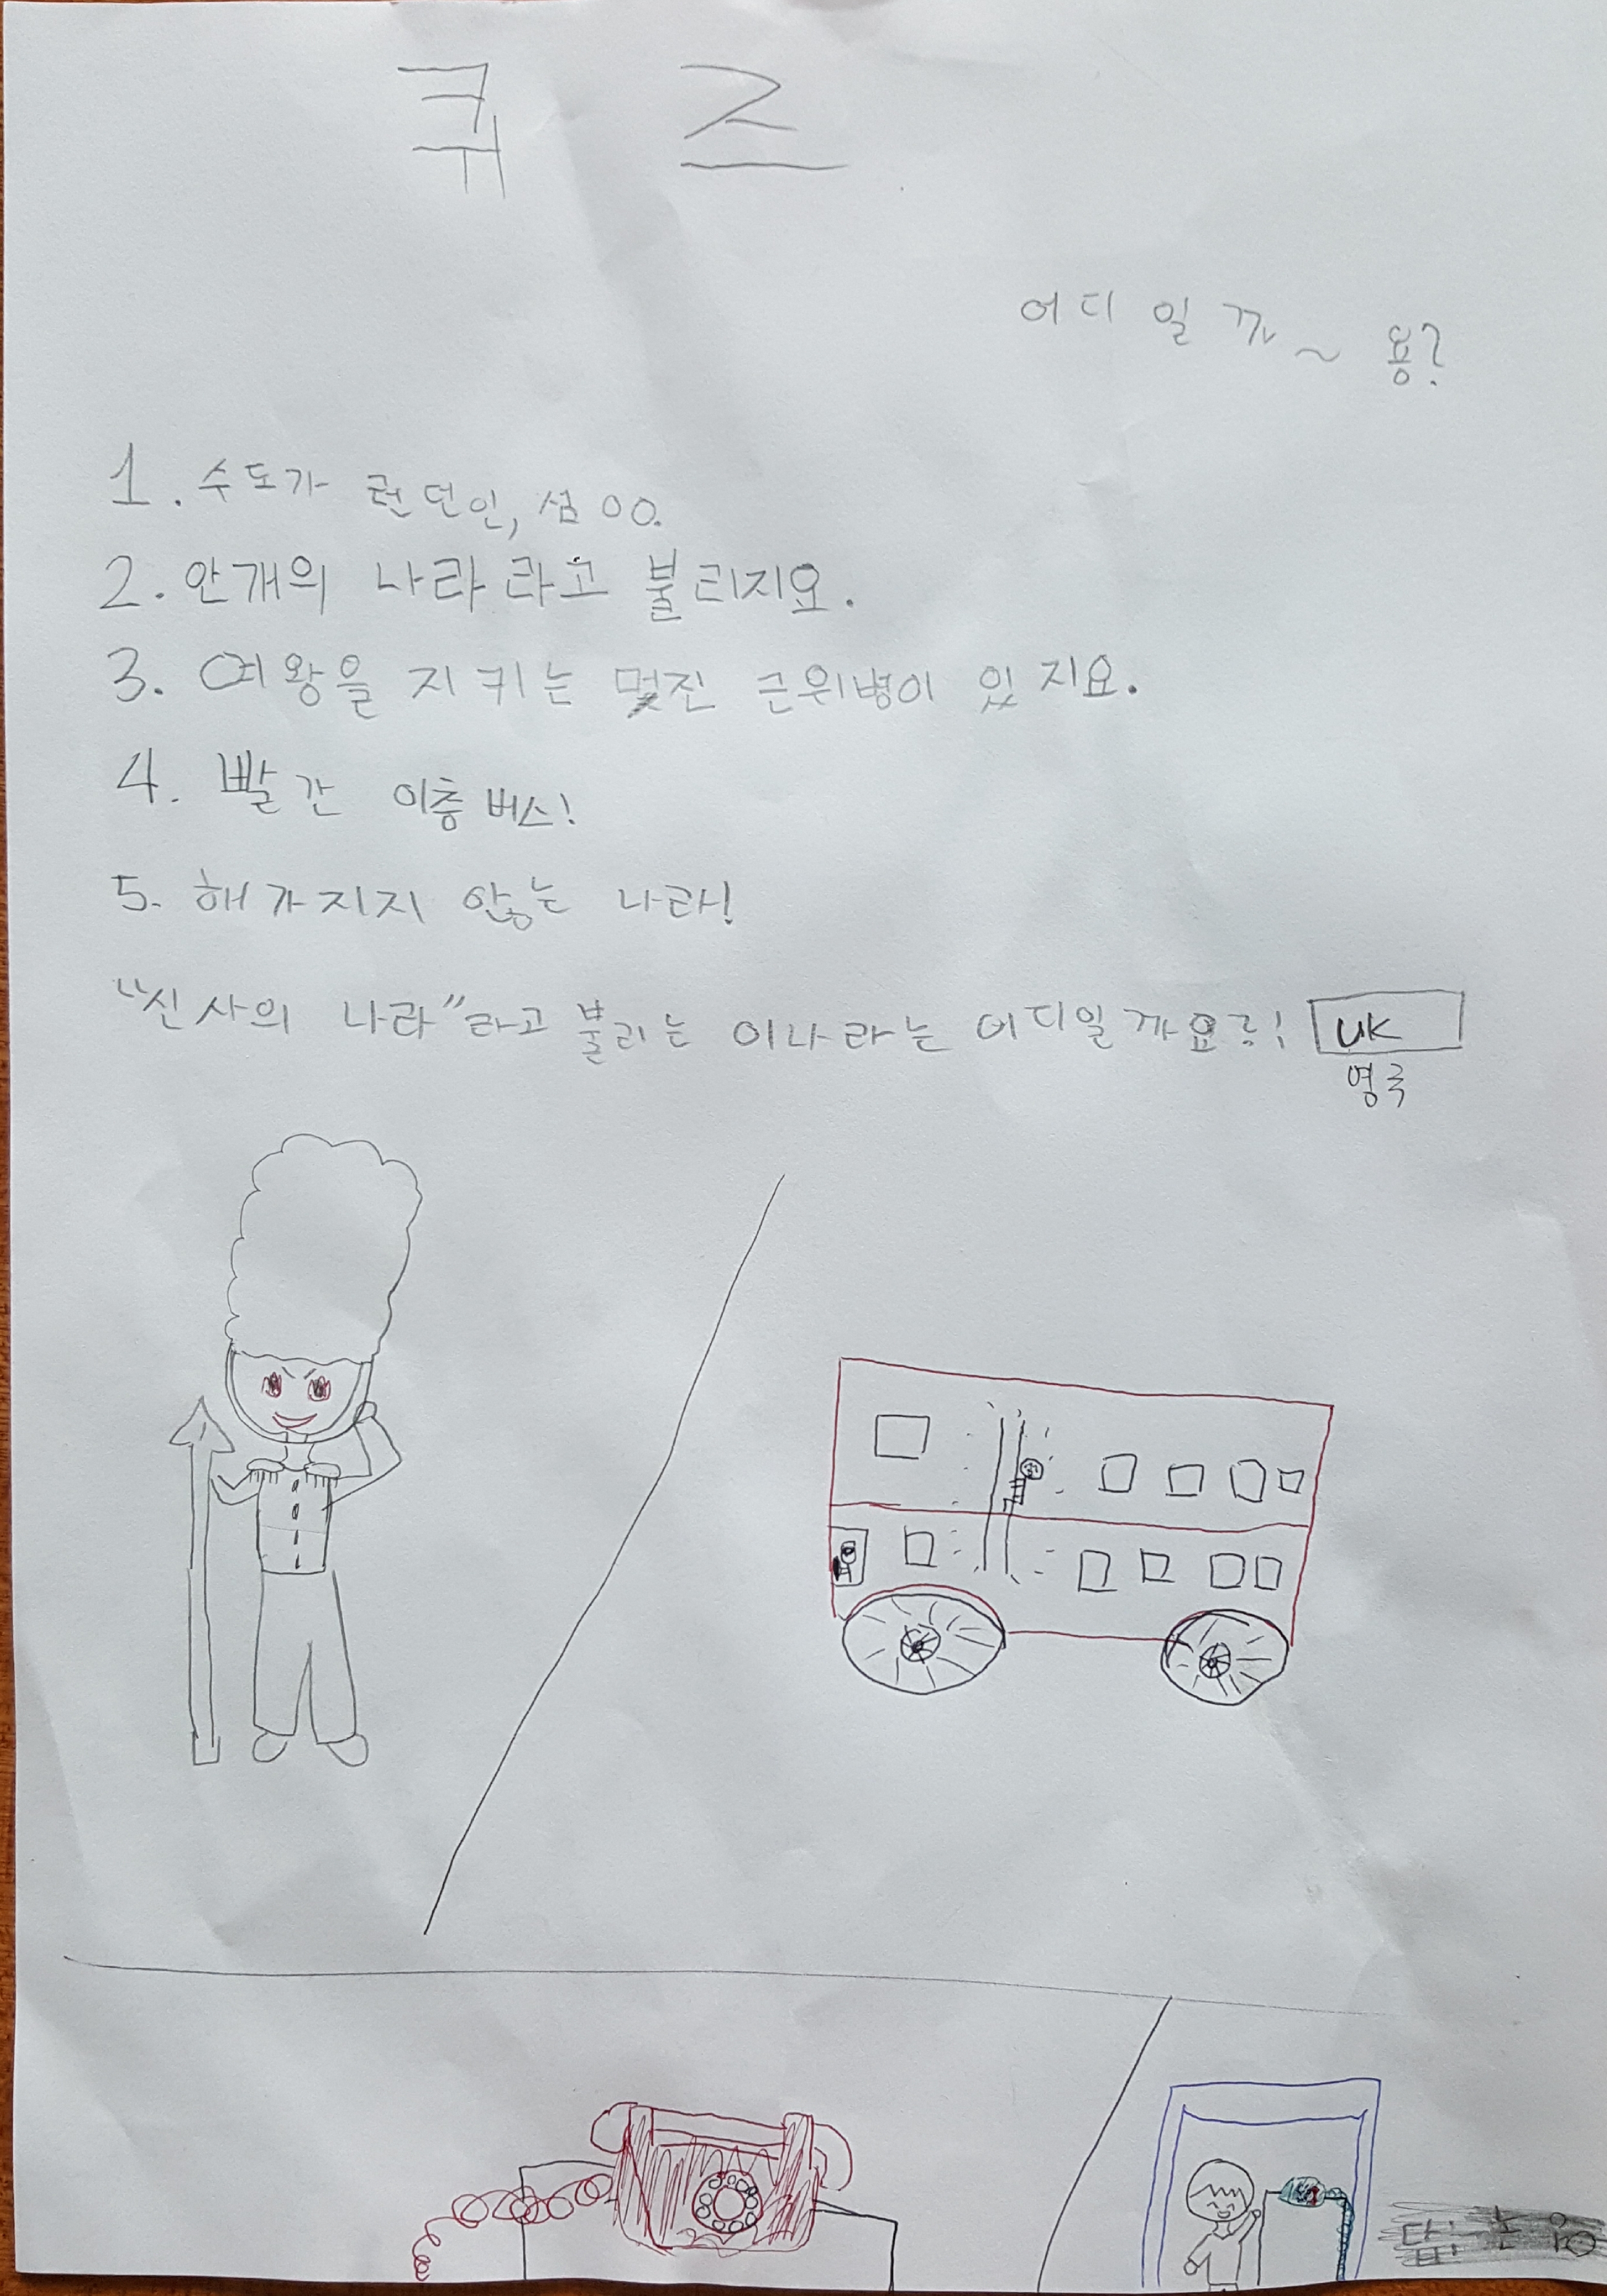 퀴즈
어디일까~용?
1. 수도가 런던인, 섬 00.
2. 안개의 나라라고 불리지요.
3. 여왕을 지키는 멋진 근위병이 있지요.
4. 빨간 이층버스!
5. 해가지지 않는 나라!
"신사의 나라"라고 불리는 이나라는 어디일까요?! UK
영국
답: